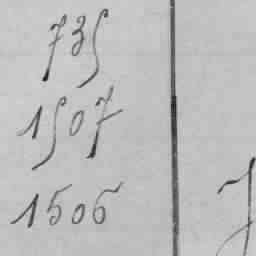 735
1507
1506